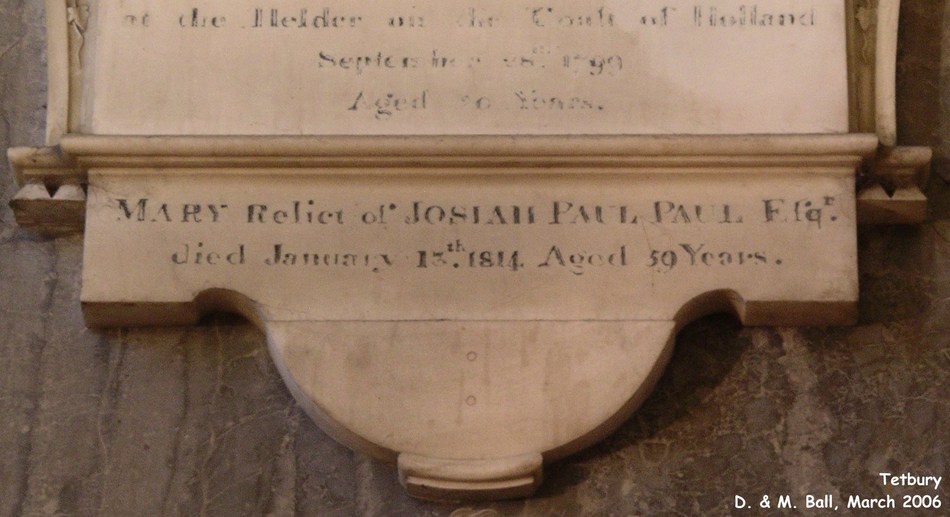 at the Helder on the Coast of Holland
September 28th 1799
Aged Years.
MARY Relict of JOSIAH PAUL PAUL Esqr.
died January 13th. 1814. Aged 59 Years.
Tetbury
D. & M. Ball, March 2006